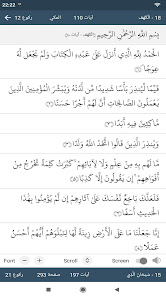 22:22
18 - الكهف آيات 110 المكي ركوع 12
بِسْمِ اللَّهِ الرَّحْمَٰنِ الرَّحِيمِ
الْحَمْدُ لِلَّهِ الَّذِي أَنْزَلَ عَلَىٰ عَبْدِهِ الْكِتَابَ وَلَمْ يَجْعَلْ لَهُ
عِوَجًا
قَيِّمًا لِيُنْذِرَ بَأْسًا شَدِيدًا مِنْ لَدُنْهُ وَيُبَشِّرَ الْمُؤْمِنِينَ الَّذِينَ
يَعْمَلُونَ الصَّالِحَاتِ أَنَّ لَهُمْ أَجْرًا حَسَنًا
مَاكِثِينَ فِيهِ أَبَدًا
وَيُنْذِرَ الَّذِينَ قَالُوا اتَّخَذَ اللَّهُ وَلَدًا
مَا لَهُمْ بِهِ مِنْ عِلْمٍ وَلَا لِآبَائِهِمْ كَبُرَتْ كَلِمَةً تَخْرُجُ مِنْ
أَفْوَاهِهِمْ إِنْ يَقُولُونَ إِلَّا كَذِبًا
فَلَعَلَّكَ بَاخِعٌ نَفْسَكَ عَلَىٰ آثَارِهِمْ إِنْ لَمْ يُؤْمِنُوا بِهَٰذَا
الْحَدِيثِ أَسَفًا
إِنَّا جَعَلْنَا مَا عَلَى الْأَرْضِ زِينَةً لَهَا لِنَبْلُوَهُمْ أَيُّهُمْ أَحْسَنُ
عَمَلًا
Font Screen
15 - سبحان الذي آيات 197 صفحة 293 ركوع 21